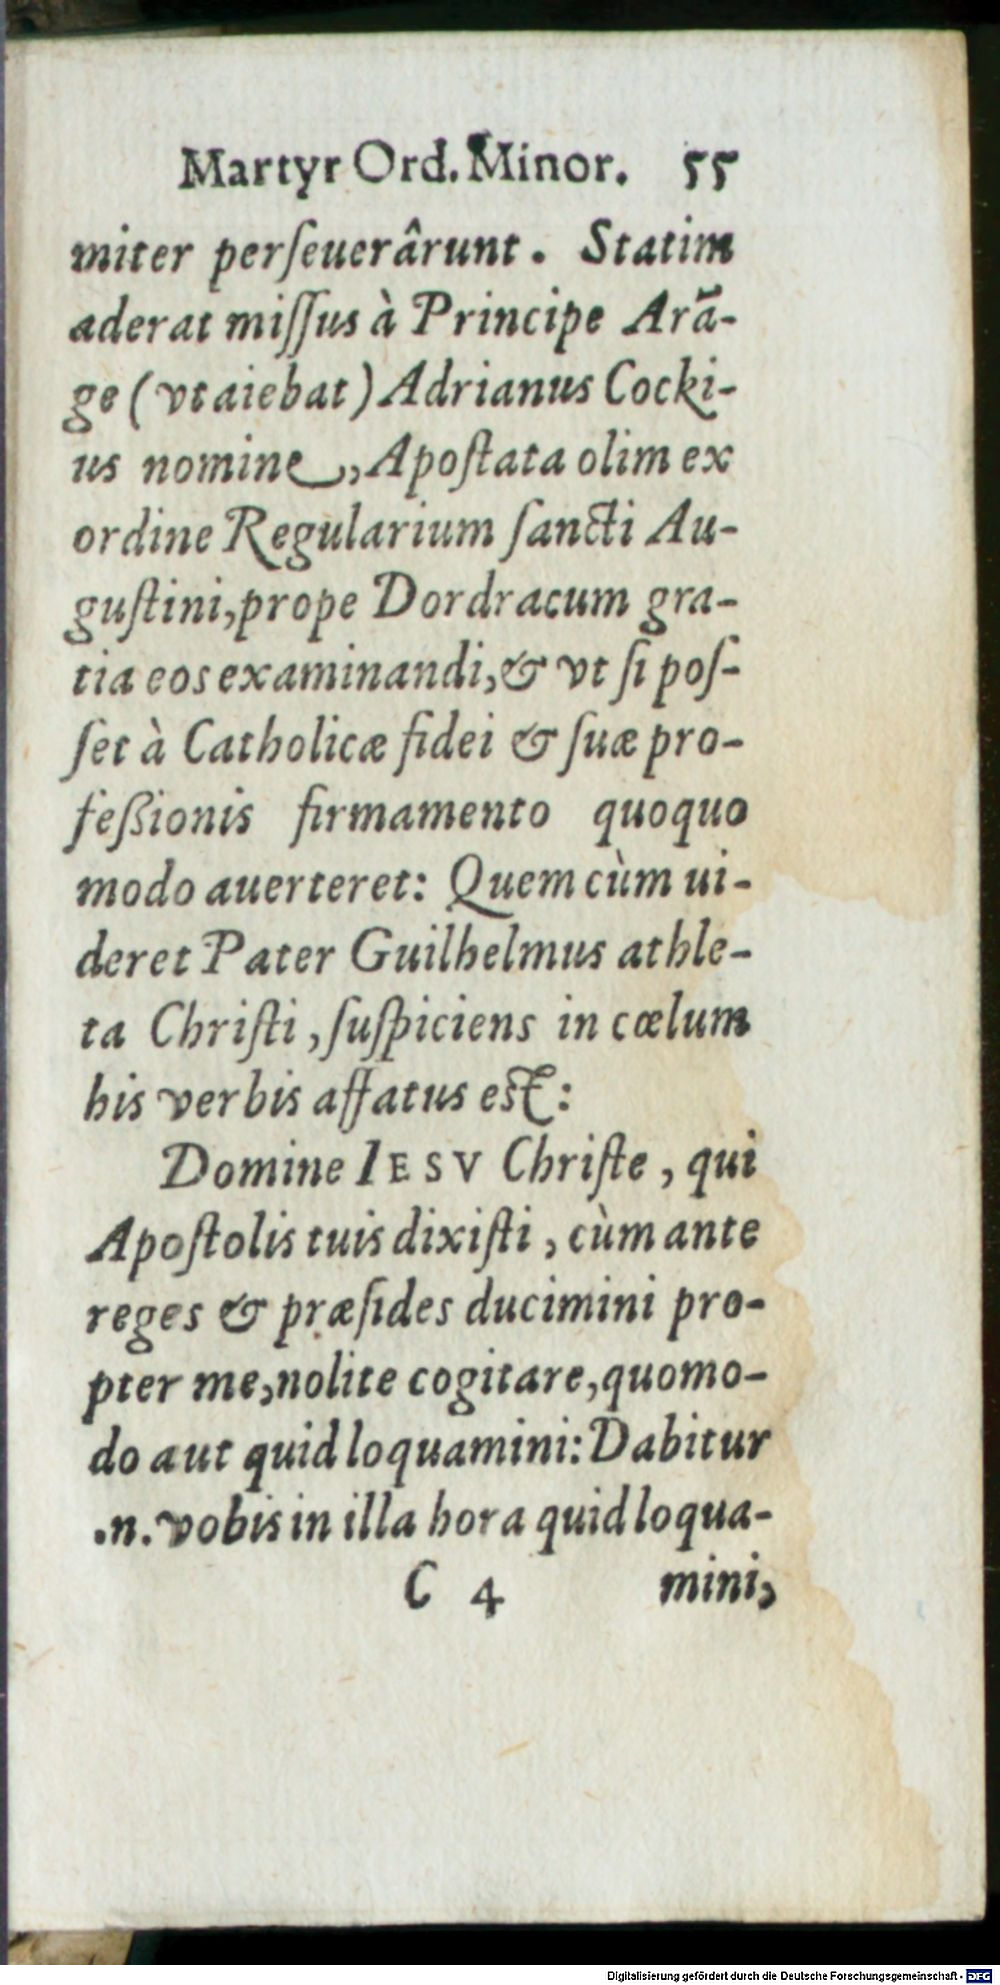 Martyr Ord. Minor. 55
miter perſeuerârunt. Statim
aderat miſſus à Principe Arã-
ge (vt aiebat) Adrianus Cocki-
us nomine, Apoſtata olim ex
ordine Regularium ſancti Au-
guſtini, prope Dordracum gra-
tia eos examinandi, & vt ſi poſ-
ſet à Catholicæ fidei & ſuæ pro-
feßionis firmamento quoquo
modo auerteret: Quem cùm ui-
deret Pater Guilhelmus athle-
ta Chriſti, ſuſpiciens in cœlum
his verbis affatus eſt:
Domine IESV Chriſte, qui
Apoſtolis tuis dixiſti, cùm ante
reges & præſides ducimini pro-
pter me, nolite cogitare, quomo-
do aut quid loquamini: Dabitur
.n. vobis in illa hora quid loqua-
C 4 mini,
Digitalisierung gefördert durch die Deutsche Forschungsgemeinschaft - DFG